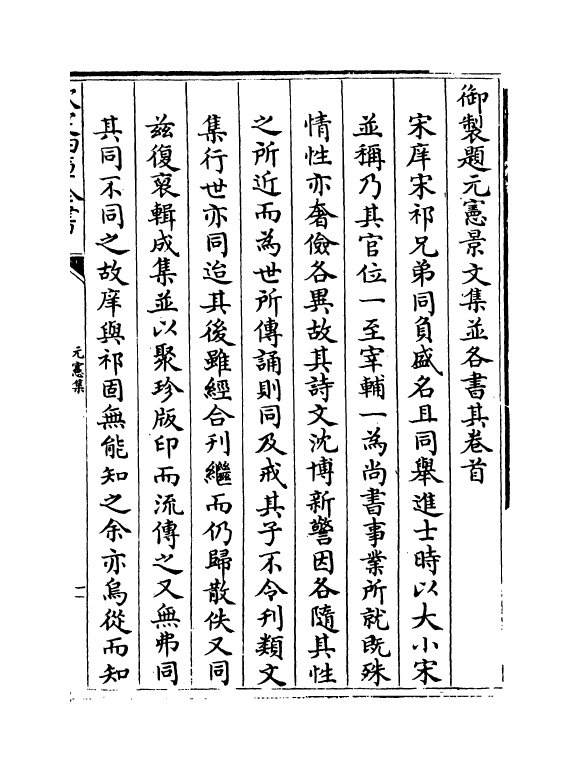 御製題元憲景文集並各書其卷首
宋庠宋祁兄弟同負盛名且同舉進士時以大小宋
並稱乃其官位一至宰輔一為尚書事業所就既殊
情性亦奢儉各異故其詩文沈博新警因各隨其性
之所近而為世所傳誦則同及戒其子不令刊類文
集行世亦同迨其後雖經合刊繼而仍歸散佚又同
茲復裒輯成集並以聚珍版印而流傳之又無弗同
其同不同之故庠與祁固無能知之余亦烏從而知
元憲集